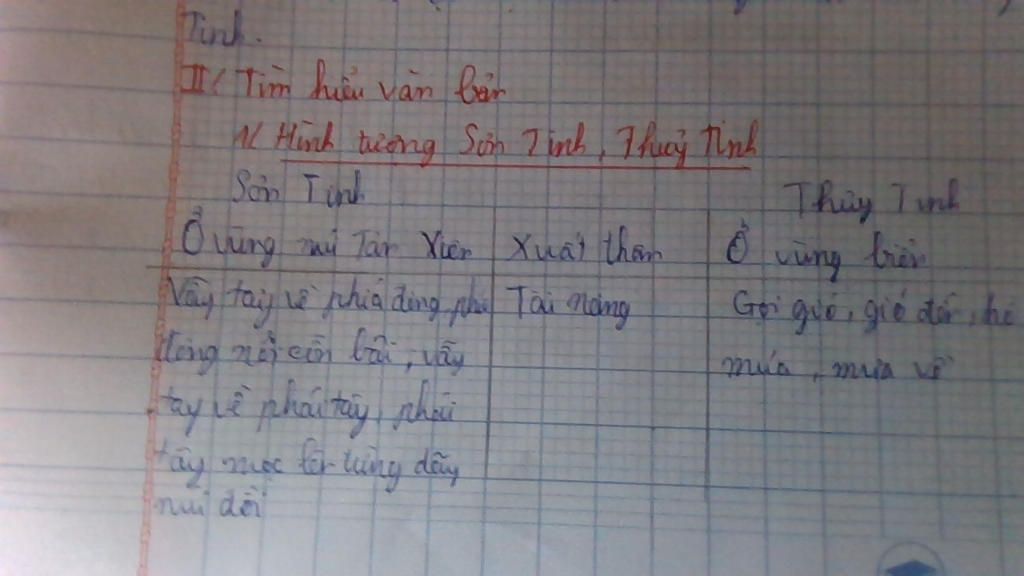 Tinh.
II/ Tìm hiểu văn bản
1/ Hình tượng Sơn Tinh, Thuỷ Tinh
Sơn Tinh
Thủy Tinh
Ở vùng núi Tản Viên
Xuất thân
Ở vùng biển
Vẫy tay về phía đông, phía
Tài năng
Gọi gió, gió đến, hô
đông nổi cồn bãi, vẫy
mưa, mưa về
tay về phía tây, phía
tây mọc lên từng dãy
núi đồi